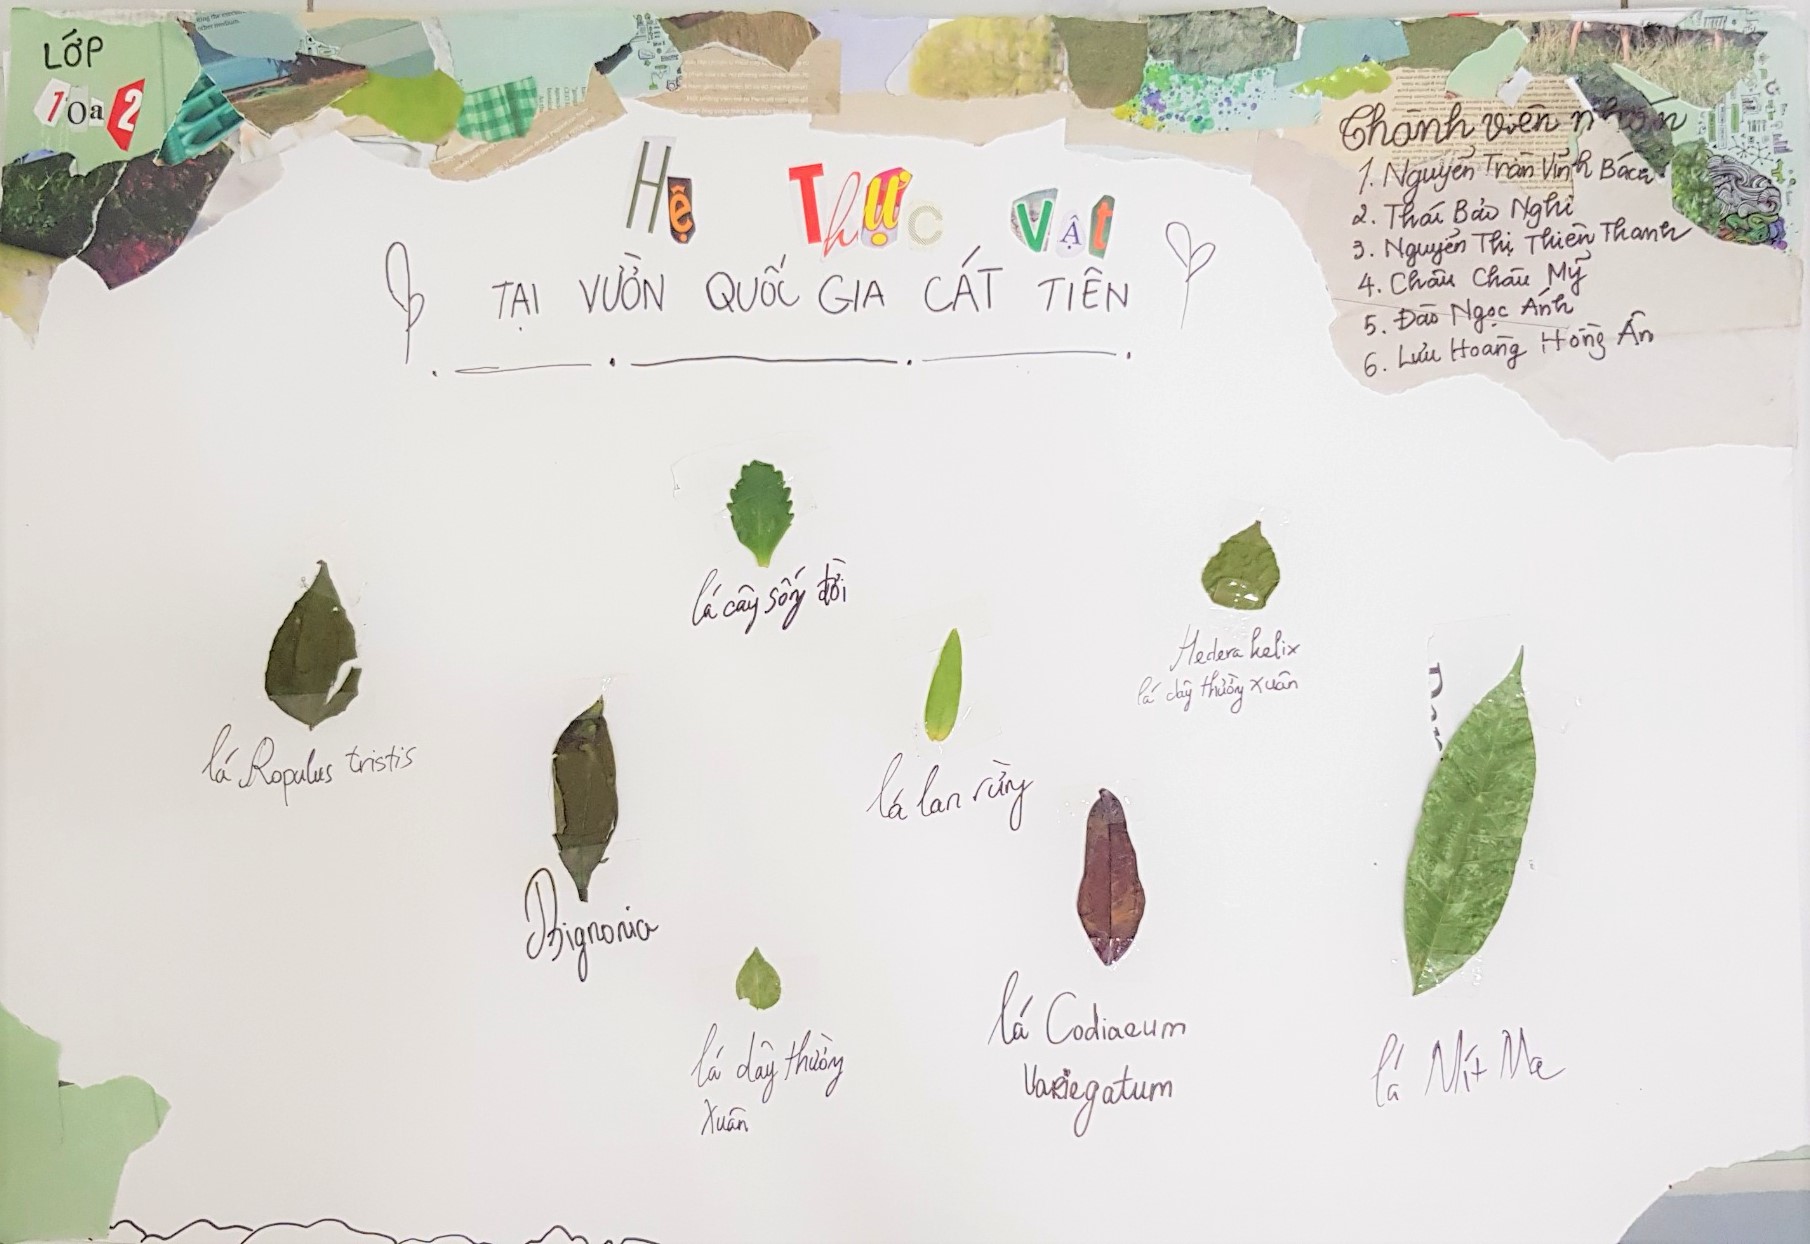 LỚP
10a2
Hệ Thực Vật
TẠI VƯỜN QUỐC GIA CÁT TIÊN
Thành viên nhóm
1. Nguyễn Trần Vĩnh
2. Thái Bảo Nghi
3. Nguyễn Thị Thiên Thanh
4. Châu Châu Mỹ
5. Đào Ngọc Ánh
6. Lưu Hoàng Hồng Ân
lá cây sống đời
Hedera helix
lá dây thường xuân
lá Ropulus tristis
lá lan rừng
Bignonia
lá dây thường
xuân
lá Codiaeum
variegatum
lá Mít Mạ